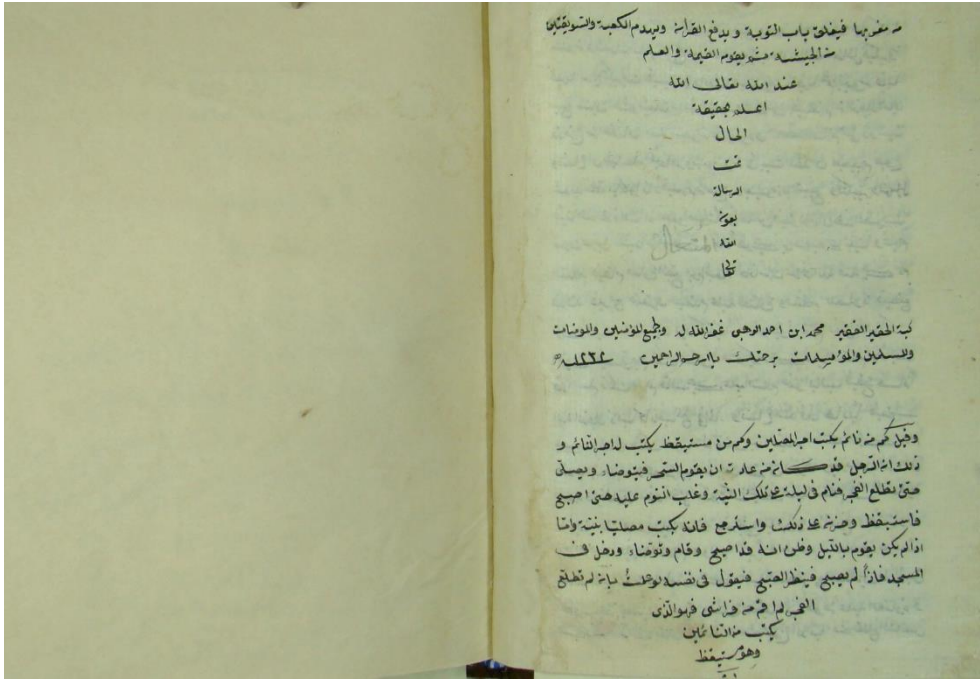 من مغربها فيغلق باب التوبة ويرفع القرآن ويهدم الكعبة والسويقتين
من الحبشة ثم يقوم القيمة والعلم
عند الله تعالى الله
اعلم بحقيقة
الحال
تمت
الرسالة
بعون
الله
تعالى
كتبه الحقير الفقير محمد ابن احمد الوهبى غفر الله له ولجميع المؤمنين والمؤمنات
والمسلمين والمسلمات برحمتك يا ارحم الراحمين ١٢٣٢
وقيل كم من نائم يكتب اجر المصلين وكم من مستيقظ يكتب له اجر النائم و
ذلك ان الرجل قد كان من عادته ان يقوم السحر فيتوضاء ويصلى
حتى يطلع الفجر فنام فى ليلة على تلك النية وغلب النوم عليه حتى اصبح
فاستيقظ وحزن على ذلك واسترجع فانه يكتب مصليا بنيته واما
اذا لم يكن يقوم بالليل وظن انه قد اصبح وقام وتوضاء ودخل فى
المسجد فاذا لم يصبح فينظر الصبح فيقول فى نفسه لو علمت بانه لم تطلع
الفجر لم اقم من فراشى فهو الذى
يكتب من النائمين
وهو مستيقظ